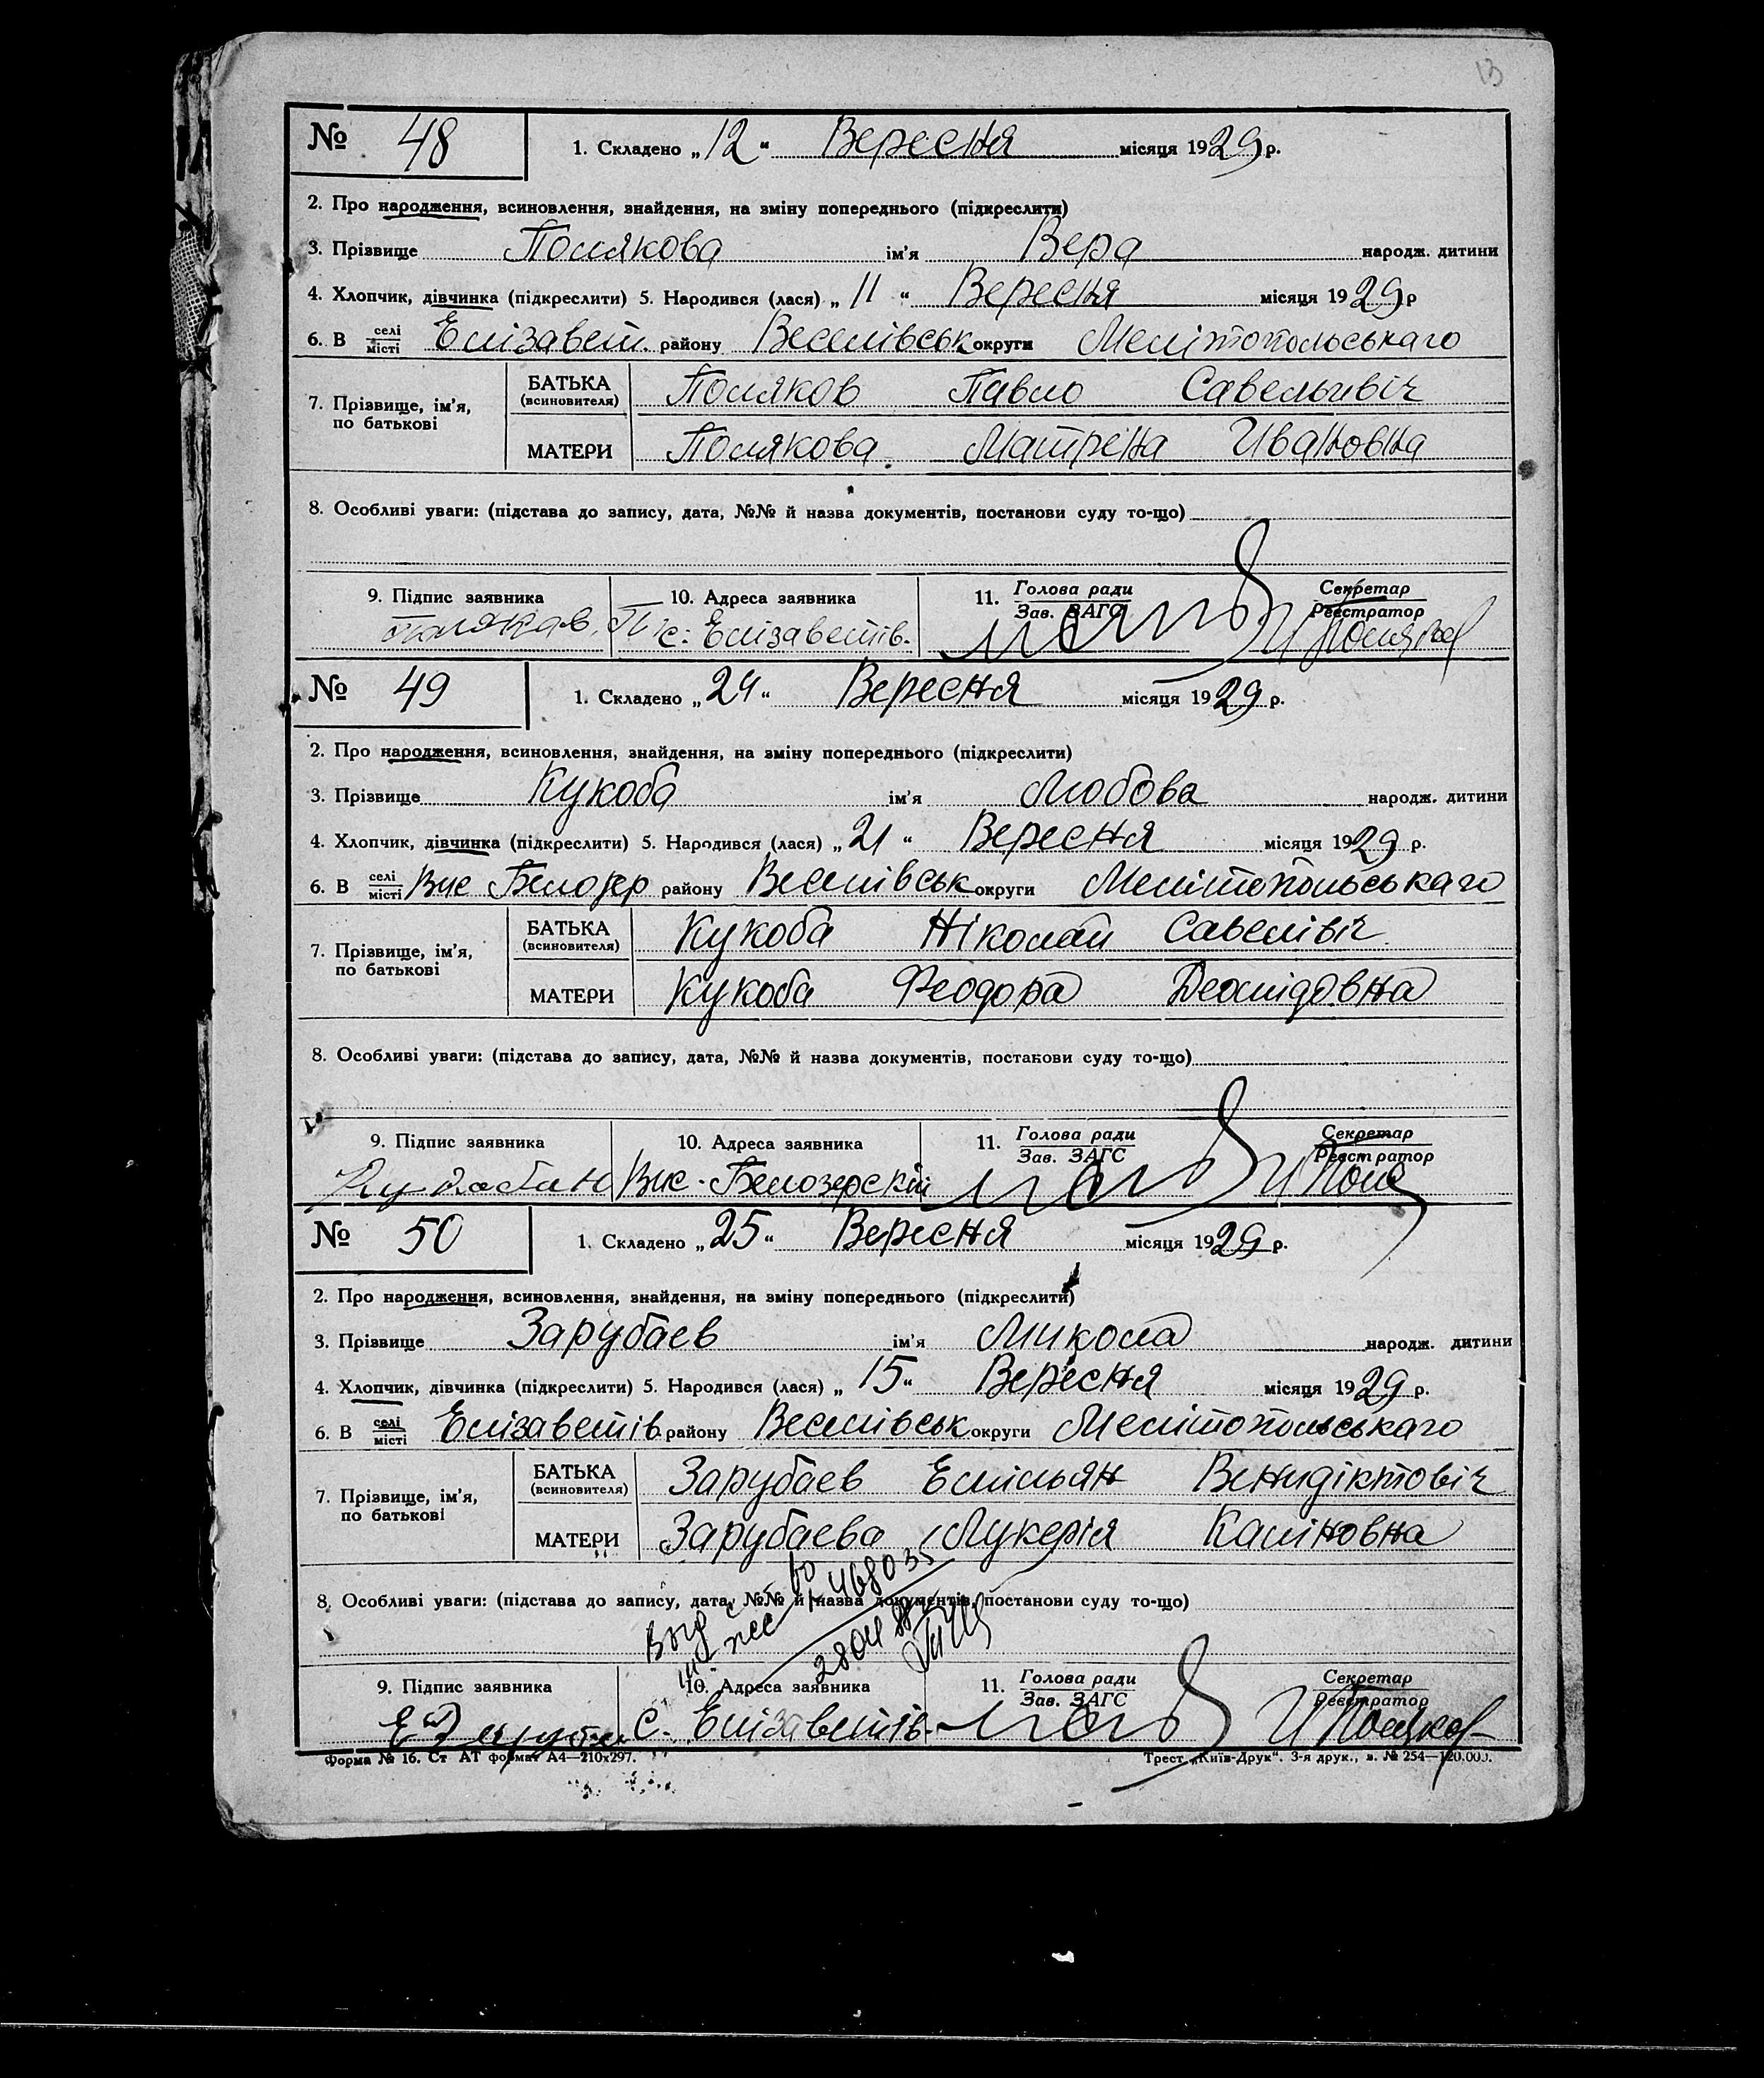 13
№ 48 1. Складено „12“ Вересня місяця 1929 р.
2. Про народження, всиновлення, знайдення, на зміну попереднього (підкреслити)
3. Прізвище Полякова ім'я Вера народж. дитини
4. Хлопчик, дівчинка (підкреслити) 5. Народився (лася) „11“ Вересня місяця 1929 р
6. В селі місті Єлізавет. району Веселівськ округи Мелітопольськаго
7. Прізвище, ім'я, по батькові
БАТЬКА (всиновителя) Поляков Павло Савельивіч
МАТЕРИ Полякова Матрена Ивановна
8. Особливі уваги: (підстава до запису, дата, №№ й назва документів, постанови суду то-що)
9. Підпис заявника 10. Адреса заявника 11. Голова ради Зав. ЗАГС Секретар Реєстратор
с. Єлізаветів.
№ 49 1. Складено „24“ Вересня місяця 1929 р.
2. Про народження, всиновлення, знайдення, на зміну попереднього (підкреслити)
3. Прізвище Кукоба ім'я Любова народж. дитини
4. Хлопчик, дівчинка (підкреслити) 5. Народився (лася) „21“ Вересня місяця 1929 р.
6. В селі місті Вис Белозер району Веселівськ округи Мелітопольськаго
7. Прізвище, ім'я, по батькові
БАТЬКА (всиновителя) Кукоба Ніколай Савелівіч
МАТЕРИ Кукоба Феодора
8. Особливі уваги: (підстава до запису, дата, №№ й назва документів, постанови суду то-що)
9. Підпис заявника 10. Адреса заявника 11. Голова ради Зав. ЗАГС Секретар Реєстратор
Вис. Белозерскій
№ 50 1. Складено „25“ Вересня місяця 1929 р.
2. Про народження, всиновлення, знайдення, на зміну попереднього (підкреслити)
3. Прізвище Зарубаев ім'я Микола народж. дитини
4. Хлопчик, дівчинка (підкреслити) 5. Народився (лася) „15“ Вересня місяця 1929 р.
6. В селі місті Єлізаветів. району Веселівськ округи Мелітопольськаго
7. Прізвище, ім'я, по батькові
БАТЬКА (всиновителя) Зарубаев Емільян Венидіктовіч
МАТЕРИ Зарубаева Лукерія Каліновна
8. Особливі уваги: (підстава до запису, дата, №№ й назва документів, постанови суду то-що)
468035
9. Підпис заявника 10. Адреса заявника 11. Голова ради Зав. ЗАГС Секретар Реєстратор
с. Єлізаветів. И Поляков
Форма № 16. Ст АТ формат А4—210х297. Трест „Київ-Друк“. 3-я друк., з. № 254—120.000.